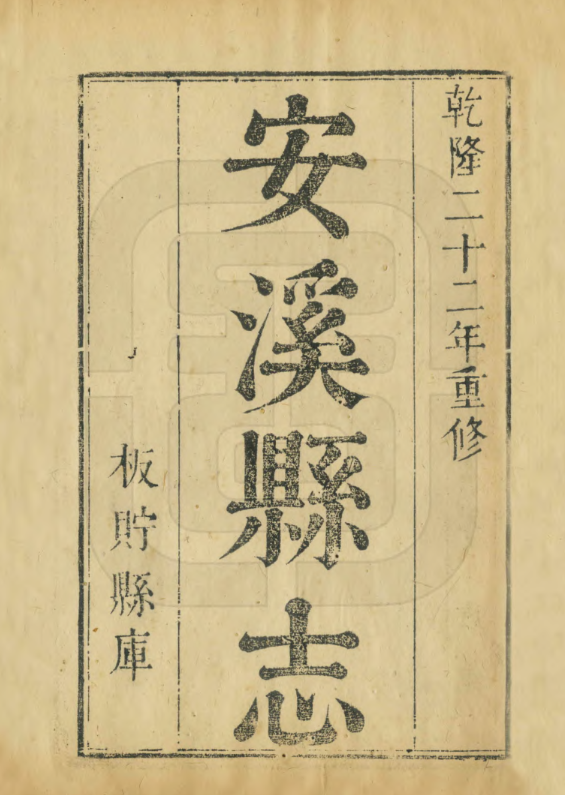 乾隆二十二年重修
安溪縣志
板貯縣庫